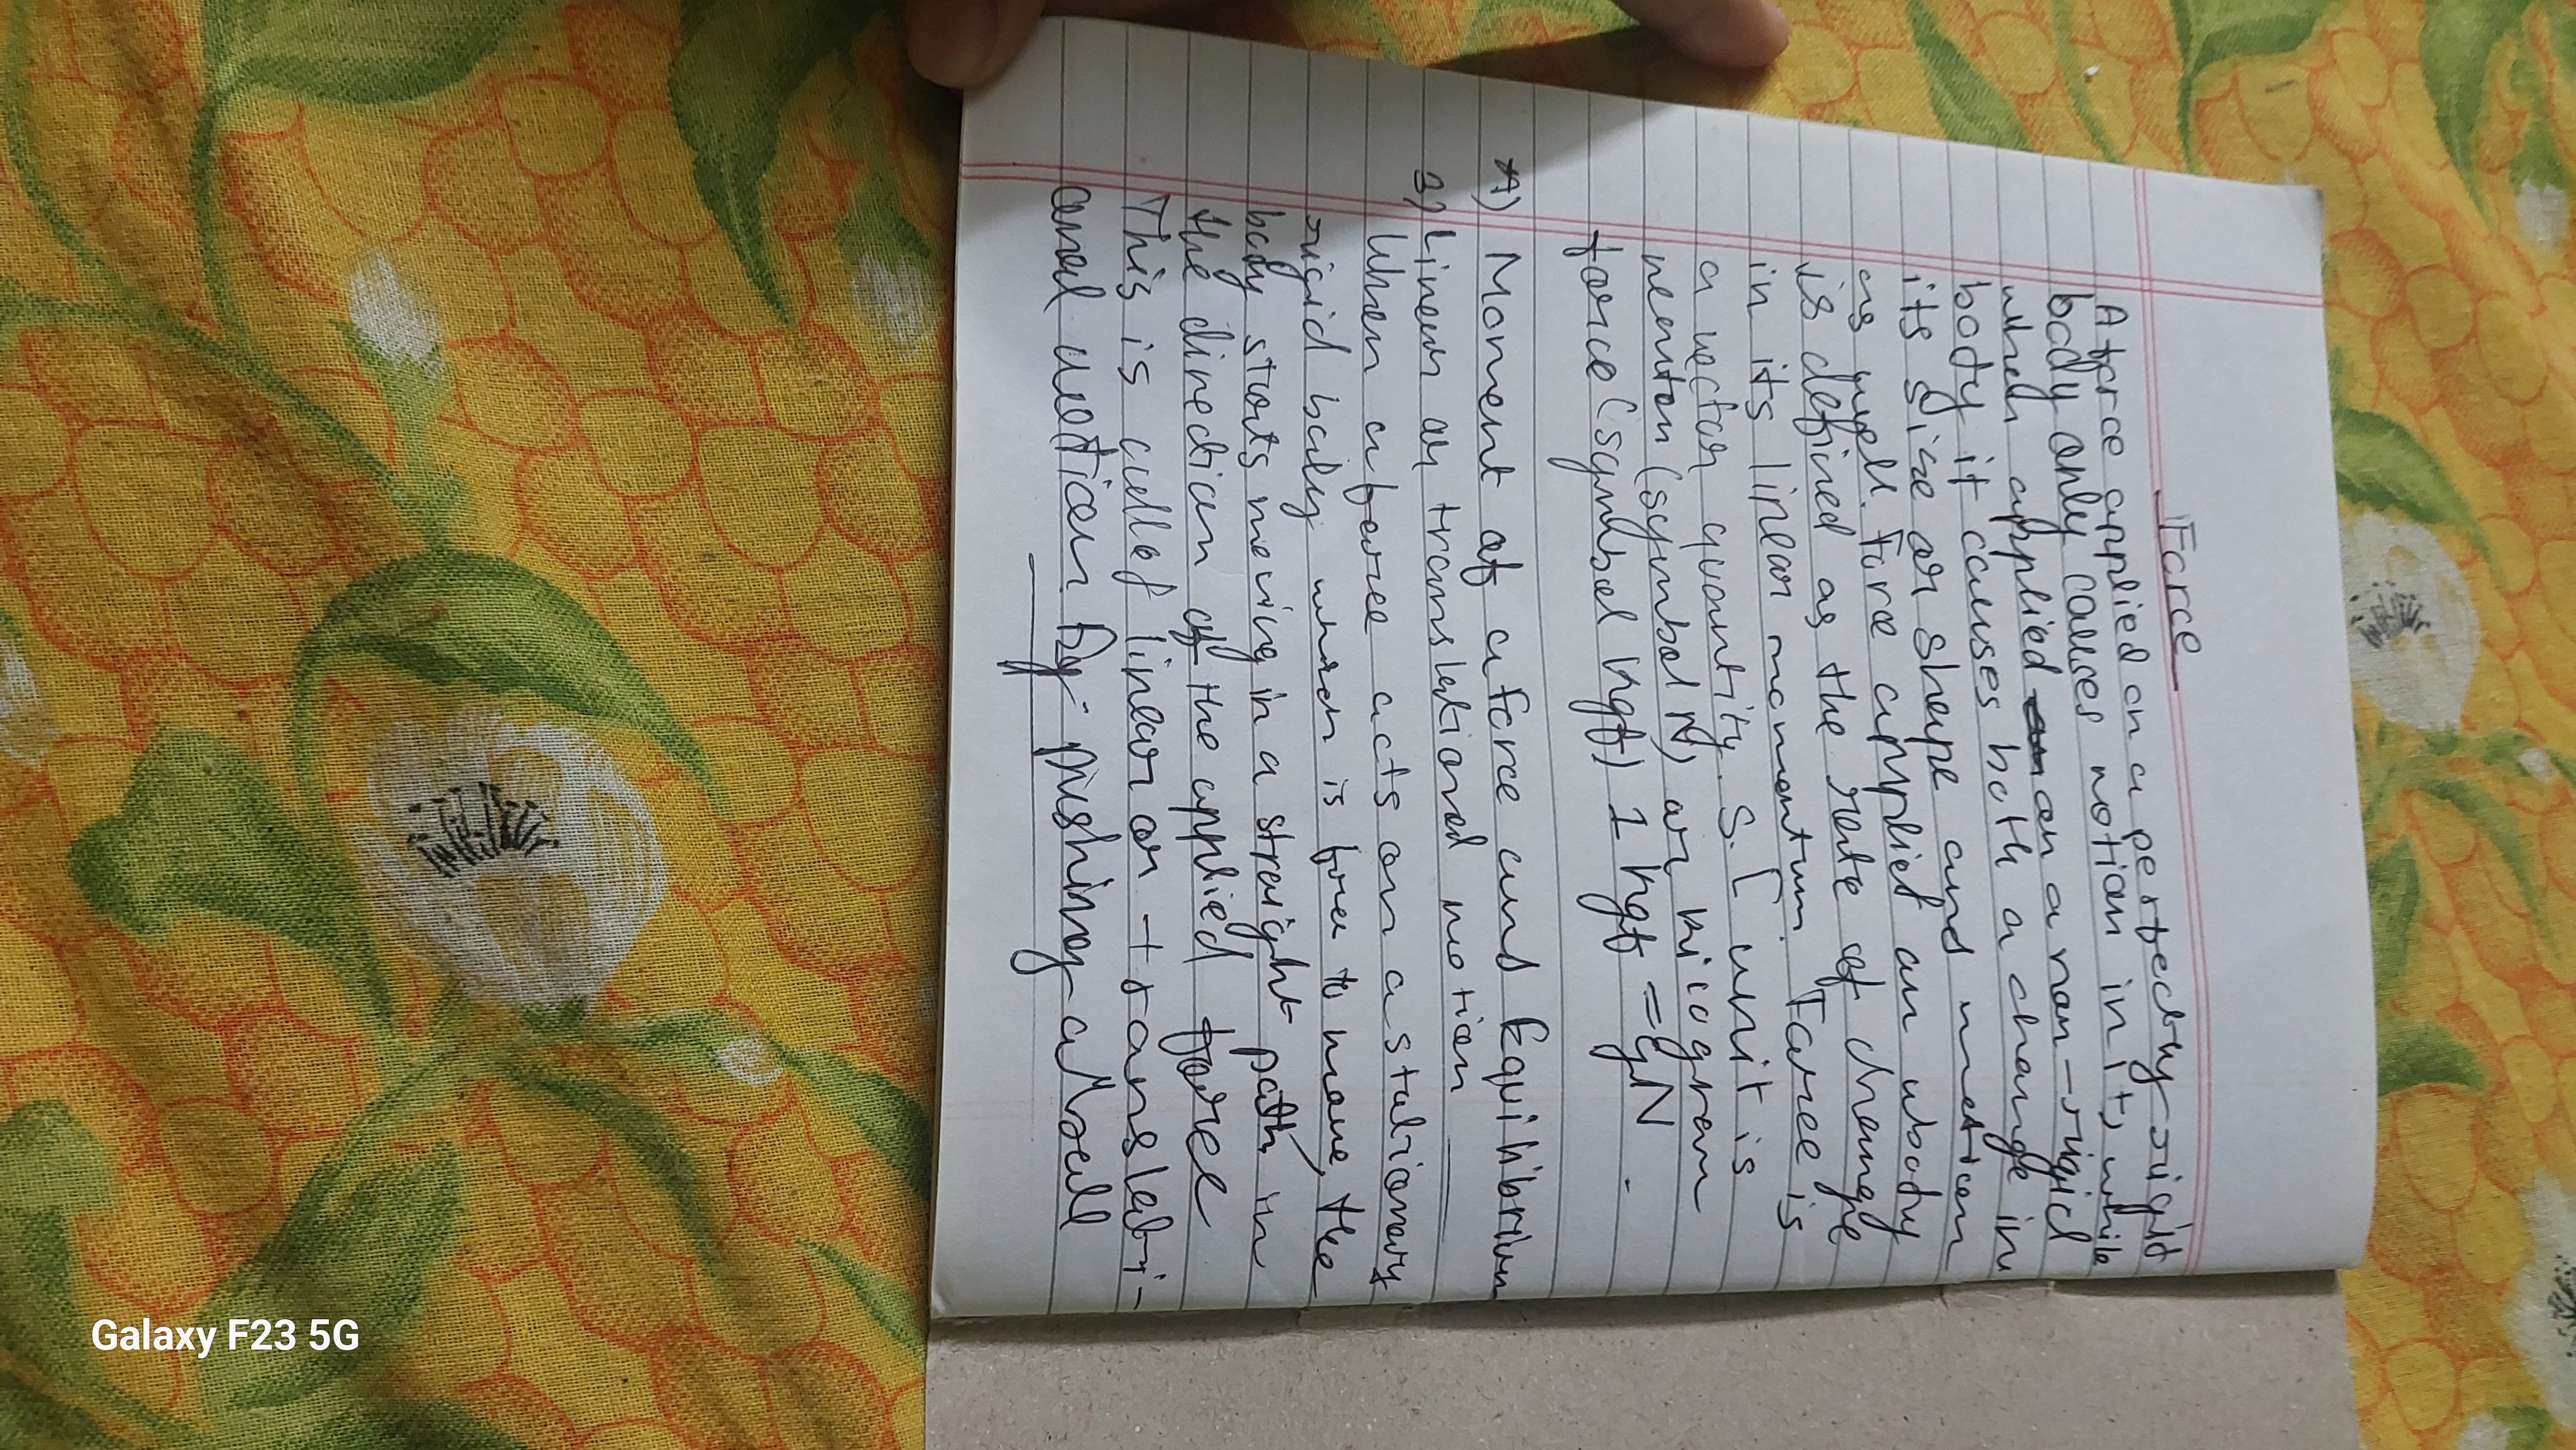 Force
A force applied on a perfectly rigid
body only causes motion in it, while
when applied on a non-rigid
body it causes both a change in
its size or shape and motion
as well. Force applied on a body
is defined as the rate of change
in its linear momentum. Force is
a vector quantity. S.I unit is
newton (symbol N) or kilogram
force (symbol kgf) 1 kgf = gN.
A) Moment of a force and Equilibrium
Linear or translational motion
When a force acts on a stationary
rigid body which is free to move, the
body starts moving in a straight path in
the direction of the applied force
This is called linear or translati-
onal motion by- pushing a ball
Galaxy F23 5G